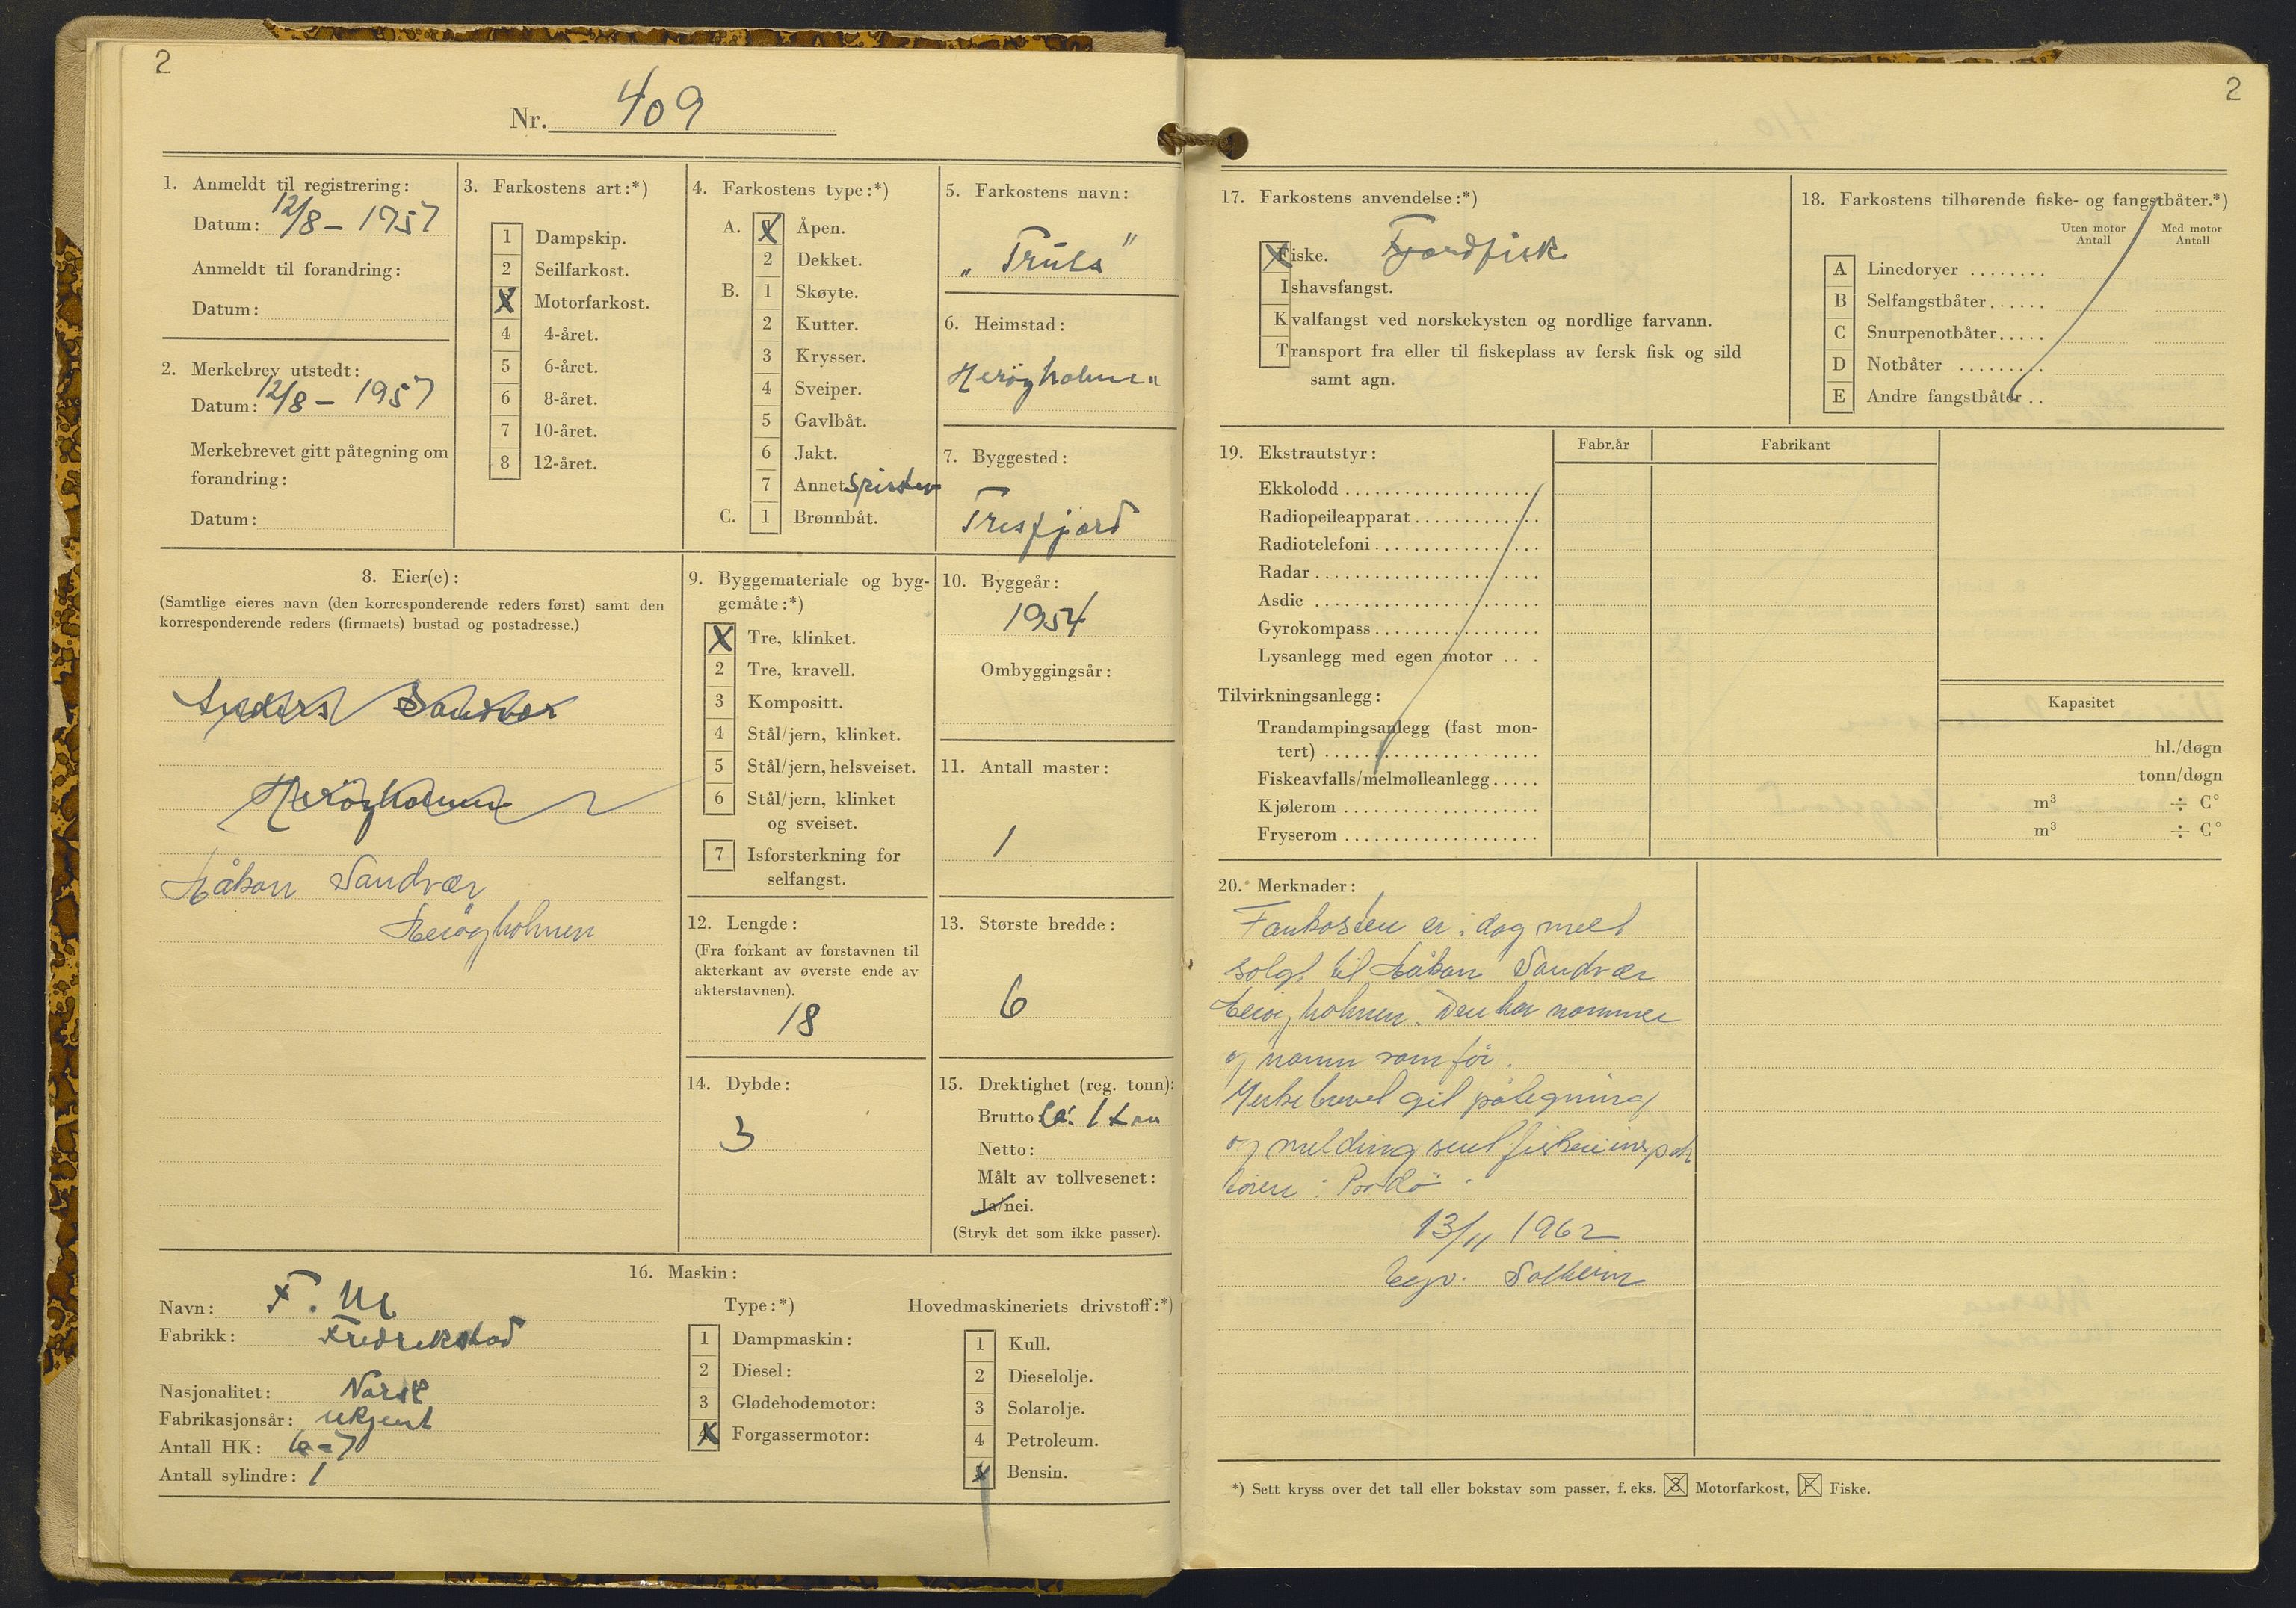 2
Nr. 409
1. Anmeldt til registrering:
Datum: 12/8 - 1957
Anmeldt til forandring:
Datum:
2. Merkebrev utstedt:
Datum: 12/8 - 1957
Merkebrevet gitt påtegning om
forandring:
Datum:
3. Farkostens art:*)
1 Dampskip.
2 Seilfarkost.
X Motorfarkost.
4 4-året.
5 6-året.
6 8-året.
7 10-året.
8 12-året.
4. Farkostens type:*)
A. X Åpen.
2 Dekket.
B. 1 Skøyte.
2 Kutter.
3 Krysser.
4 Sveiper.
5 Gavlbåt.
6 Jakt.
7 Annet
C. 1 Brønnbåt.
5. Farkostens navn:
6. Heimstad:
Herøyholmen
7. Byggested:
Tresfjord
8. Eier(e):
(Samtlige eieres navn (den korresponderende reders først) samt den
korresponderende reders (firmaets) bustad og postadresse.)
Anders Sandvær
Herøyholmen
Håkon Sandvær
Herøyholmen
9. Byggemateriale og byg-
gemåte:*)
X Tre, klinket.
2 Tre, kravell.
3 Kompositt.
4 Stål/jern, klinket.
5 Stål/jern, helsveiset.
6 Stål/jern, klinket
og sveiset.
7 Isforsterkning for
selfangst.
10. Byggeår:
1954
Ombyggingsår:
11. Antall master:
1
12. Lengde:
(Fra forkant av forstavnen til
akterkant av øverste ende av
akterstavnen).
18
13. Største bredde:
6
14. Dybde:
3
15. Drektighet (reg. tonn):
Brutto: Ca. 1 tonn
Netto:
Målt av tollvesenet:
Ja/nei.
(Stryk det som ikke passer).
16. Maskin:
Navn: F. M
Fabrikk: Fredrikstad
Nasjonalitet: Norsk
Fabrikasjonsår: ukjent
Antall HK: 6-7
Antall sylindre: 1
Type:*)
1 Dampmaskin:
2 Diesel:
3 Glødehodemotor:
X Forgassermotor:
Hovedmaskineriets drivstoff:*)
1 Kull.
2 Dieselolje.
3 Solarolje.
4 Petroleum.
X Bensin.
2
17. Farkostens anvendelse:*)
Fiske. Fjordfisk
Ishavsfangst.
Kvalfangst ved norskekysten og nordlige farvann.
Transport fra eller til fiskeplass av fersk fisk og sild
samt agn.
18. Farkostens tilhørende fiske- og fangstbåter.*)
Uten motor Antall
Med motor Antall
A Linedoryer
B Selfangstbåter
C Snurpenotbåter
D Notbåter
E Andre fangstbåter
19. Ekstrautstyr:
Fabr.år
Fabrikant
Ekkolodd
Radiopeileapparat
Radiotelefoni
Radar
Asdic
Gyrokompass
Lysanlegg med egen motor
Tilvirkningsanlegg:
Kapasitet
Trandampingsanlegg (fast mon-
tert) hl./døgn
Fiskeavfalls/melmølleanlegg tonn/døgn
Kjølerom m³ ÷ C°
Fryserom m³ ÷ C°
20. Merknader:
Farkosten er i dag meldt
solgt til Håkon Sandvær
Herøyholmen. Den har nommer
og namn som før.
Merkebrevet git påtegning
og melding sent fiskeriinspek
tøren i Bodø.
13/11 1962
Solheim
*) Sett kryss over det tall eller bokstav som passer, f. eks. 3 Motorfarkost, F Fiske.